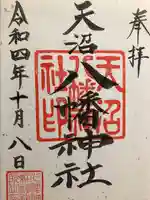 奉拝
天沼
八幡神社
令和四年十月八日
天沼
八幡
社印